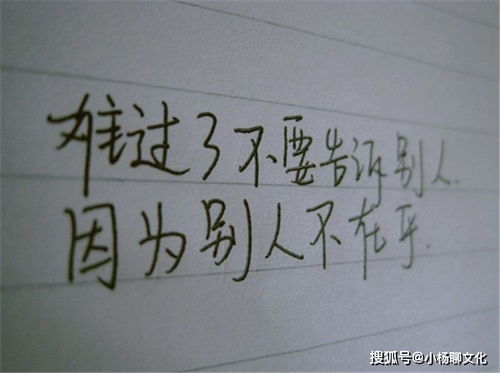 难过了不要告诉别人.
因为别人不在乎.
搜狐号@小杨聊文化